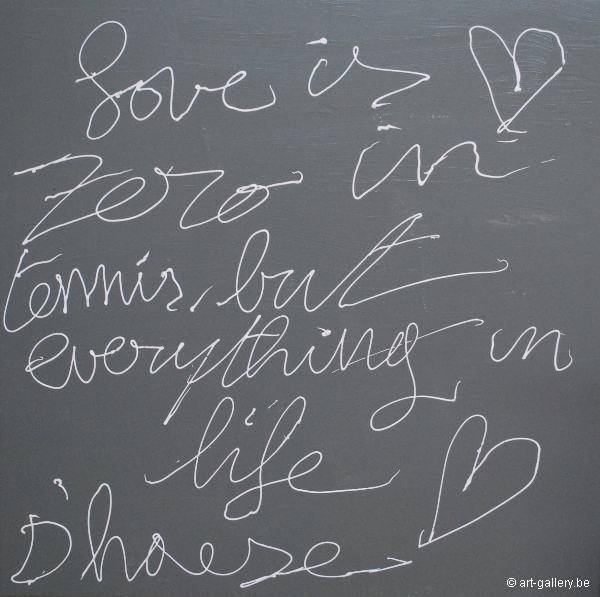 Love is
zero in
tennis, but
everything in
life
D'haese
© art-gallery.be